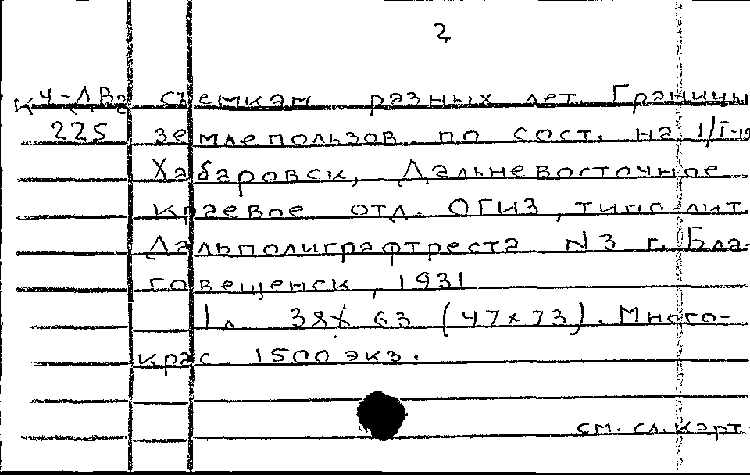 2
К4-ДВа съемкам разных лет. Границы
225 землепользов. по сост. на 1/I-19
Хабаровск, Дальневосточное
краевое отд. ОГИЗ, типо лит.
Дальполиграфтреста N3 г. Бла-
говещенск, 1931
1 л. 38х63 (47х73). Много-
крас. 1500 экз.
см. сл. карт.